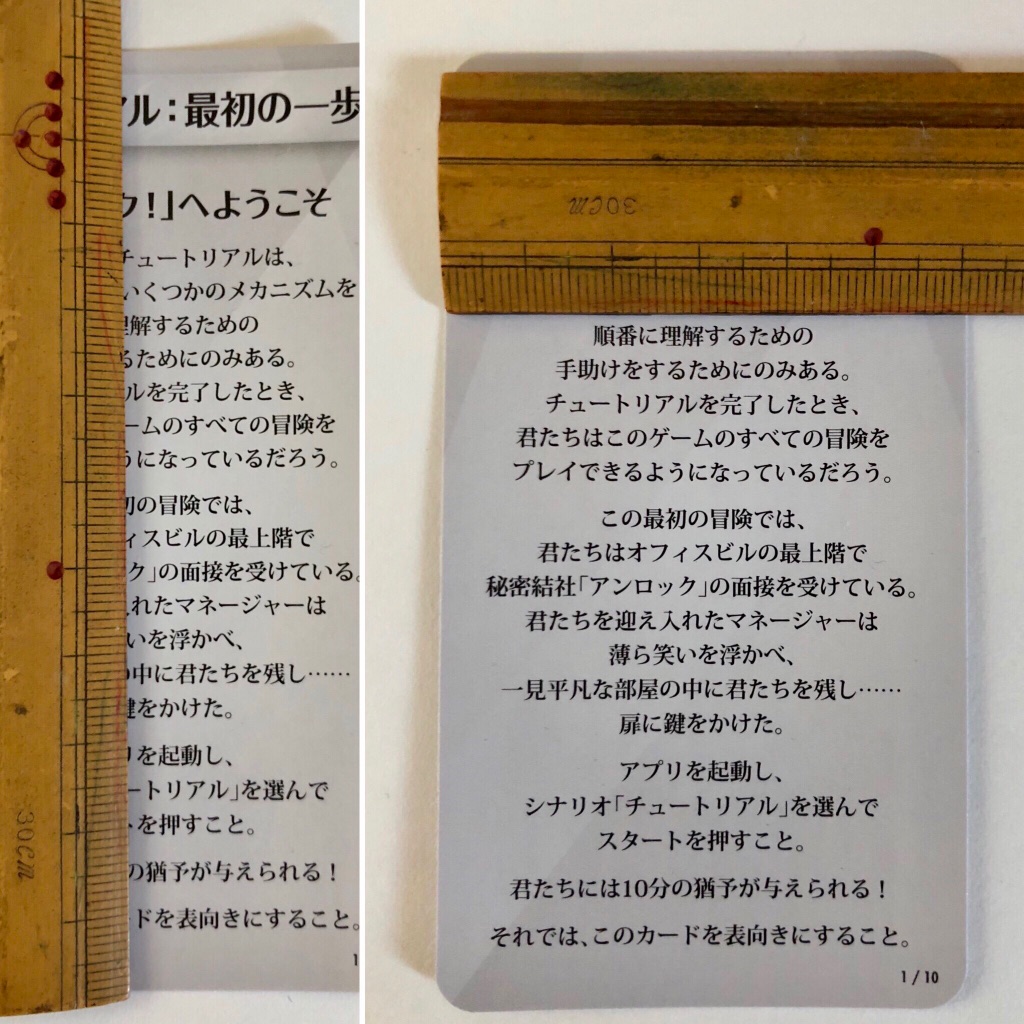 アル：最初の一歩
ク！」へようこそ
チュートリアルは、
いくつかのメカニズムを
理解するための
るためにのみある。
ルを完了したとき、
ームのすべての冒険を
うになっているだろう。
初の冒険では、
ィスビルの最上階で
ク」の面接を受けている。
入れたマネージャーは
いを浮かべ、
の中に君たちを残し……
鍵をかけた。
リを起動し、
ートリアル」を選んで
トを押すこと。
の猶予が与えられる！
ードを表向きにすること。
1
30cm
30cm
順番に理解するための
手助けをするためにのみある。
チュートリアルを完了したとき、
君たちはこのゲームのすべての冒険を
プレイできるようになっているだろう。
この最初の冒険では、
君たちはオフィスビルの最上階で
秘密結社「アンロック」の面接を受けている。
君たちを迎え入れたマネージャーは
薄ら笑いを浮かべ、
一見平凡な部屋の中に君たちを残し……
扉に鍵をかけた。
アプリを起動し、
シナリオ「チュートリアル」を選んで
スタートを押すこと。
君たちには10分の猶予が与えられる！
それでは、このカードを表向きにすること。
1 / 10